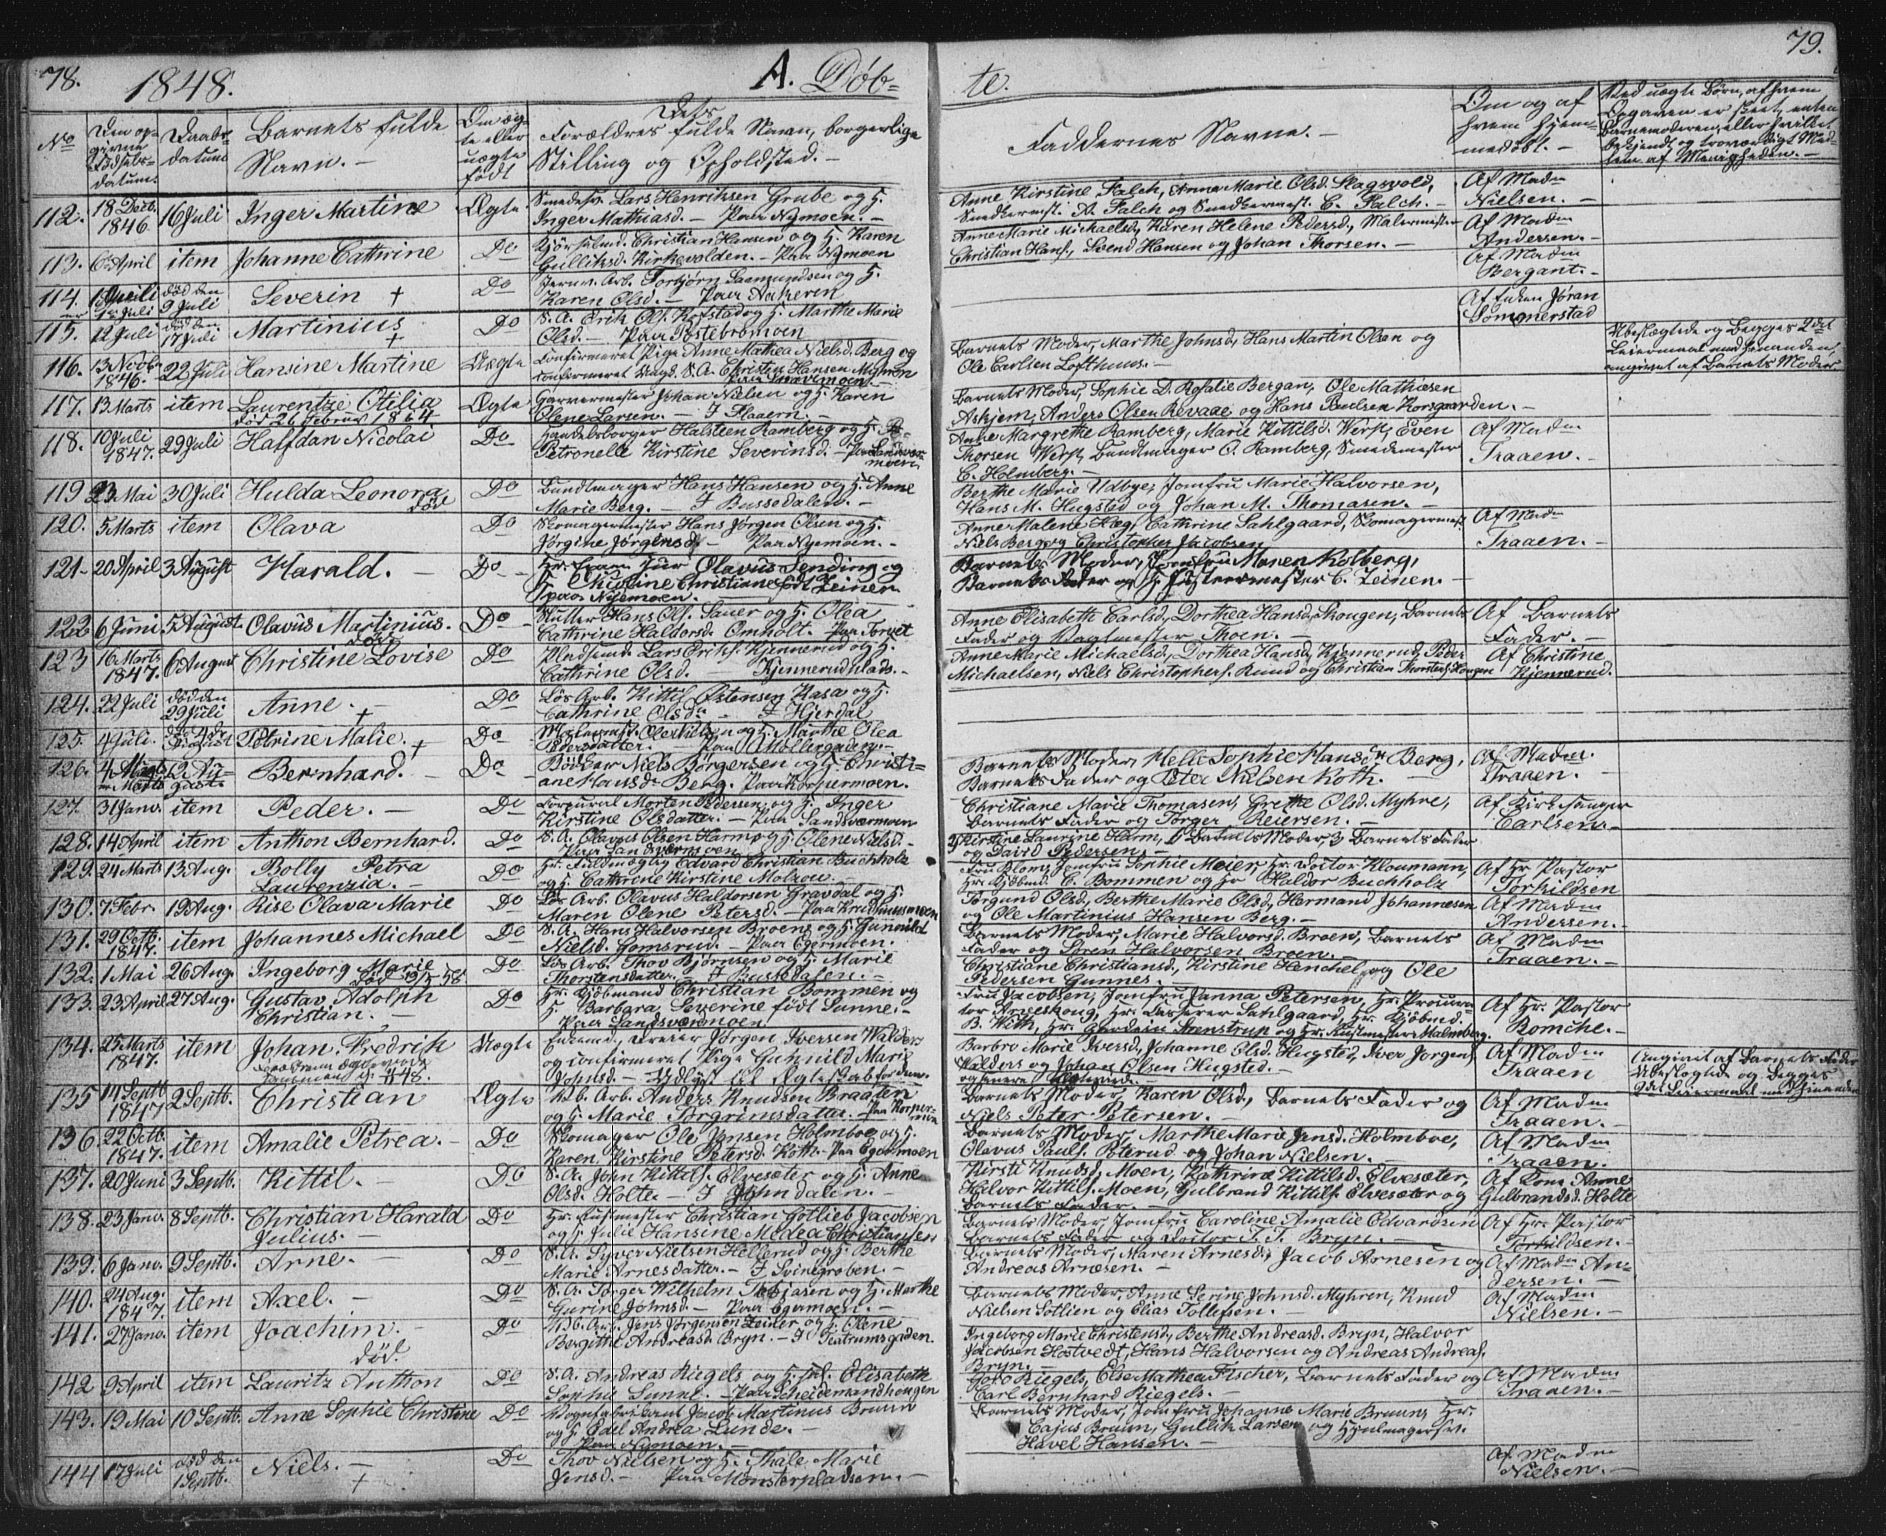 78.
1848.
A. Døb-
te.
79.
No
Den op-
givne
Fødsels-
datum.
Daabs-
datum
Barnets fulde
Navn. —
Om æg-
te eller
uægte
født
Dets
Forældres fulde Navn, borgerlige
Stilling og Opholdsted. —
Faddernes Navne. —
Om og af
hvem hjem-
medøbt. —
Ved uægte Børn, af hvem
Opgaven er skeet, enten
Barnemoderen, eller hvilket
bekjendt og troværdigt Med-
lem af Menigheden. —
112. 18 Decb. 1846. 16 Juli Inger Martine Ægte
Lars Henriksen Grube og H.
Inger Mathiasd. — Paa Nymoen. —
Anne Kirstine Falch, Anna Marie Olsd. Skagsvold,
Snedkermest. A. Falch og Snedkermest. C. Falch. —
Af Madm
Nielsen. —
113. 6 April item Johanne Cathrine Do
Christian Hansen og H. Karen
Gulliksd. Kirkevolden. — Paa Nymoen
Anne Marie Michaelsd., Karen Helene Pedersd., Malermest.
Christian Hans., Svend Hansen og Johan Thorsen. —
Af Madm
Andersen. —
114. Juli død den 9 Juli Severin + Do
Arb. Torbjørn Saamundsen og H.
Karen Olsd. —
Af Madm
Bergant. —
115. 12 Juli død den 17 Juli Martinius + Do
S. A. Erik Ols. Kofstad og H. Marthe Marie
Olsd. — Paa Postebromoen
Jøran
Sommerstad
116. 13 Novbr. 1846. 22 Juli Hansine Martine Uægte
Confirmeret Pige Anne Mathea Nielsd. Berg og
confirmeret S. A. Christen Hansen Myhren
Barnets Moder, Marthe Johnsd., Hans Martin Olsen og
Ole Carlsen Lofthuus. —
Ubeslægtede og Begges 2det
Leiermaal med hinanden,
angivet af Barnets Moder
117. 13 Marts item Laurentze Otilia Ægte
død 26 Februar 1864
Garvermester Johan Nielsen og H. Karen
Olene Larsen. — I Flaaern. —
Barnets Moder, Sophie D. Rosalie Bergan, Ole Mathiesen
Askjem, Anders Olsen Revaae og Hans Poulsen Korsgaarden. —
118. 10 Juli 1847. 29 Juli Halfdan Nicolai Do
Handelsborger Halsteen Ramberg og H.
Petronelle Kirstine Severinsd. — Paa Sandsvær-
moen.
Anne Margrethe Ramberg, Marie Kittilsd. Werp, Even
Thorsen Werp, Bundtmager O. Ramberg, Smedemester
C. Holmberg. —
Af Madm
Traaen. —
119 23 Mai 30 Juli Hulda Leonora Do
død
Bundtmager Hans Hansen og H. Anne
Marie Berg. — I Bussedalen. —
Berthe Marie Udbye, Jomfru Marie Halvorsen,
Hans M. Hugsted og Johan M. Thomasen. —
120. 5 Marts item Olava Do
Skomagermester Hans Jørgen Olsen og H.
Jørgine Jørgensd. — Paa Nymoen. —
Anne Malene Hæg, Cathrine Sahlgaard, Skomagermest.
Niels Berg og Christopher Jacobsen
Af Madm
Traaen. —
121 — 20 April 3 August Harald. — Do
Olavus Sending og
H. Christine Christiane født Zeiner
paa Nymoen. —
Barnets Moder, Jomfru Maren Kolberg,
Barnets Fader og Hr. Justermester C. Zeinen. —
122 6 Juni 5 August Olavus Martinius. Do
død
Hutter Hans Ols. Sauer og H. Olea
Cathrine Haldorsd. Omholt. Paa Torvet
Anne Elisabeth Carlsd., Dorthea Hansd. Skougen, Barnets
Fader og Vagtmester Thoen. —
Af Barnets
Fader. —
123 16 Marts 1847. 6 August Christine Lovise Do
Pladsmand Lars Eriks. Kjennerud og H.
Cathrine Olsd. — Kjennerudplads. —
Anne Marie Michaelsd., Dorthea Hansd. Kjennerud, Peder
Michaelsen, Niels Christophers. Ruud og Christian Thorsteds. Hougen
Af Christine
Kjennerud.
124. 22 Juli død den 29 Juli Anne. — + Do
Løs Arb. Kittil Østensen Kasa og H.
Cathrine Olsdr. — I Hjerdal
125. 4 Juli. Petrine Malie. + Do
og H. Marthe Olea
Pedersdatter. — Paa Møllergaden. —
126. 4 Marts 12 Au-
gust Bernhard. — Do
Bødker Niels Børgersen og H. Christi-
ane Hansdr. Berg. Paa Korpermoen.
Barnets Moder, Helle Sophie Hansdr. Berg,
Barnets Fader og Peter Nielsen Koth. —
Af Madm
Traaen. —
127. 31 Janv. item Peder. — Do
Corporal Morten Pedersen og H. Inger
Kirstine Olsdatter. — Paa Sandsværmoen
Christiane Marie Thomasen, Grethe Olsd. Myhre,
Barnets Fader og Tørger Reiersen. —
Af Kirkesanger
Carlsen. —
128. 14 April item Anthon Bernhard. Do
S. A. Olavus Olsen Harmo og H. Olene Nielsd. —
Paa Sandsværmoen
Kirstine Laurine Holm, Barnets Moder, Barnets Fader
og David Pedersen. —
129. 24 Marts 13 Aug. Bolly Petra
Laurenzia. — Do
Hr. Fuldmægtig Edvard Christian Buchholz
og H. Cathrine Kirstine Moltzou. —
Fru Blom, Jomfru Sophie Meier, Hr. Doctor Kloumann,
Hr. Kjøbmd. C. Bommen og Hr. Haldor Buchholz
Af Hr. Pastor
Torkildsen
130. 7 Febr. 19 Aug. Rise Olava Marie Do
Løs Arb. Olavus Haldorsen Gravdal og H.
Maren Olene Petersd. — Paa Krudhuusmoen
Torgund Olsd., Berthe Marie Olsd., Hermand Johannesen
og Ole Martinius Hansen Berg. —
Af Madm
Andersen. —
131. 29 Octb. 1847. item Johannes Michael Do
S. A. Hans Halvorsen Broen og H. Gunnild
Nielsd. Gomsrud. — Paa Egermoen. —
Barnets Moder, Marie Halvorsd. Broen, Barnets
Fader og Søren Halvorsen Broen. —
Af Madm
Traaen. —
132. 1 Mai 26 Aug. Ingeborg Marie Do
Løs Arb. Thov Bjørnsen og H. Marie
Thorstensdatter. — I Bussedalen. —
Christiane Christiansd., Kirstine Henchel og Ole
Pedersen Gunnes. —
133. 23 April 27 Aug. Gustav Adolph
Christian. — Do
Hr. Kjøbmand Christian Bommen og
H. Barbara Severine født Sunne. —
Paa Sandsværmoen.
Fru Jacobsen, Jomfru Janna Petersen, Hr. Procura-
tor Arneskoug, Hr. Sahlgaard, Hr. Kjøbmd.
B. With, Hr. Stenstrup og Hr. Malmberg.
Af Hr. Pastor
Bomche. —
134. 25 Marts 1847. item Johan Fredrik Uægte
Jørgen Iversen Walders
og confirmeret Pige Gunnild Marie
Johnsd. — Udlyst til Ægteskab
Barbro Marie Iversd., Johanne Olsd. Hugsted, Iver Jørgens.
Walders og Johan Olsen Hugsted. —
Af Madm
Traaen
Angivet af Barnets Fader
Ubeslægtede og Begges
2det Leiermaal med hinanden
135 14 Septb. 1847 2 Septb. Christian Ægte
Arb. Anders Knudsen Braaten
og H. Marie Torgrimsdatter. Paa Korper-
moen
Barnets Moder, Karen Olsd., Barnets Fader og
Niels Peter Petersen. —
Af Madm
Traaen. —
136. 22 Octb. 1847. item Amalie Petrea. — Do
Skomager Ole Jensen Holmboe og H.
Karen Kirstine Petersd. Koth. Paa Egermoen
Barnets Moder, Marthe Marie Jensd. Holmboe,
Olavus Pauls. Poterud og Johan Nielsen. —
Af Madm
Traaen. —
137. 20 Juni 3 Septb. Kittil. — Do
S. A. John Kittils. Elvesæter og H. Anne
Olsd. Holte — I Johndalen. —
Kirsti Knudsd. Moen, Kathrine Kittilsd. Elvesæter,
Halvor Kittils. Moen, Gulbrand Kittils. Elvesæter og
Barnets Fader. —
Af Kone Anne
Gulbrandsd. Holte
138. 23 Janv. 8 Septb. Christian Harald
Julius. — Do
Hr. Justmester Christian Gotlieb Jacobsen
og H. Julie Hansine Medea Christiansen
Barnets Moder, Jomfru Caroline Amalie Edvardsen
Barnets Fader og Doctor T. J. Bryn. —
Af Hr. Pastor
Torkildsen. —
139. 6 Janv. 9 Septb. Arne. — Do
S. A. Syver Nielsen Hellerud og H. Berthe
Marie Arnesdatter. — I Svinegroben. —
Barnets Moder, Maren Arnesd., Jacob Arnesen og
Andreas Arnesen. —
Af Madm An-
dersen. —
140. 24 Aug. 1847. item Axel. — Do
S. A. Tørger Wilhelm Tobiasen og H. Marthe
Gurine Johnsd. — Paa Egermoen. —
Barnets Moder, Anne Serine Johnsd. Myhren, Knud
Nielsen Sotlien og Elias Tollefsen. —
Af Madm
Nielsen. —
141. 27 Janv. item Joachim. — Do
død.
Arb. Jens Jørgensen Zeiler og H. Olene
Bergithe Andreasd. Bryn. — I Teatrumsgaden.
Ingeborg Marie Christensd., Berthe Andreasd. Bryn, Halvor
Jacobsen Hostvedt, Hans Halvorsen og Andreas Andreas.
Bryn. —
142 9 April item Lauritz Anthon Do
S. A. Andreas Riegels og H. Elisabeth
Sophie Sunne. — Paa Scheidemandhougen
Riegels, Else Mathea Fischer, Barnets Fader og
Carl Bernhard Riegels. —
Af Madm
Traaen. —
143. 19 Mai 10 Septb. Anne Sophie Christine Do
Vognfabrikant Jacob Martinus Bruun
og H. Edel Andrea Lunde. —
Paa Nymoen. —
Barnets Moder, Jomfru Johanne Marie Bruun, Hr.
Cajus Bruun, Gullik Larsen og Hjulmagersv.
Havel Hansen. —
144 17 Juli død den 1 Septb. Niels. — + Do
Thov Nielsen og H. Thale Marie
Jensd. — Paa Mønsterpladsen. —
Af Madm
Nielsen. —